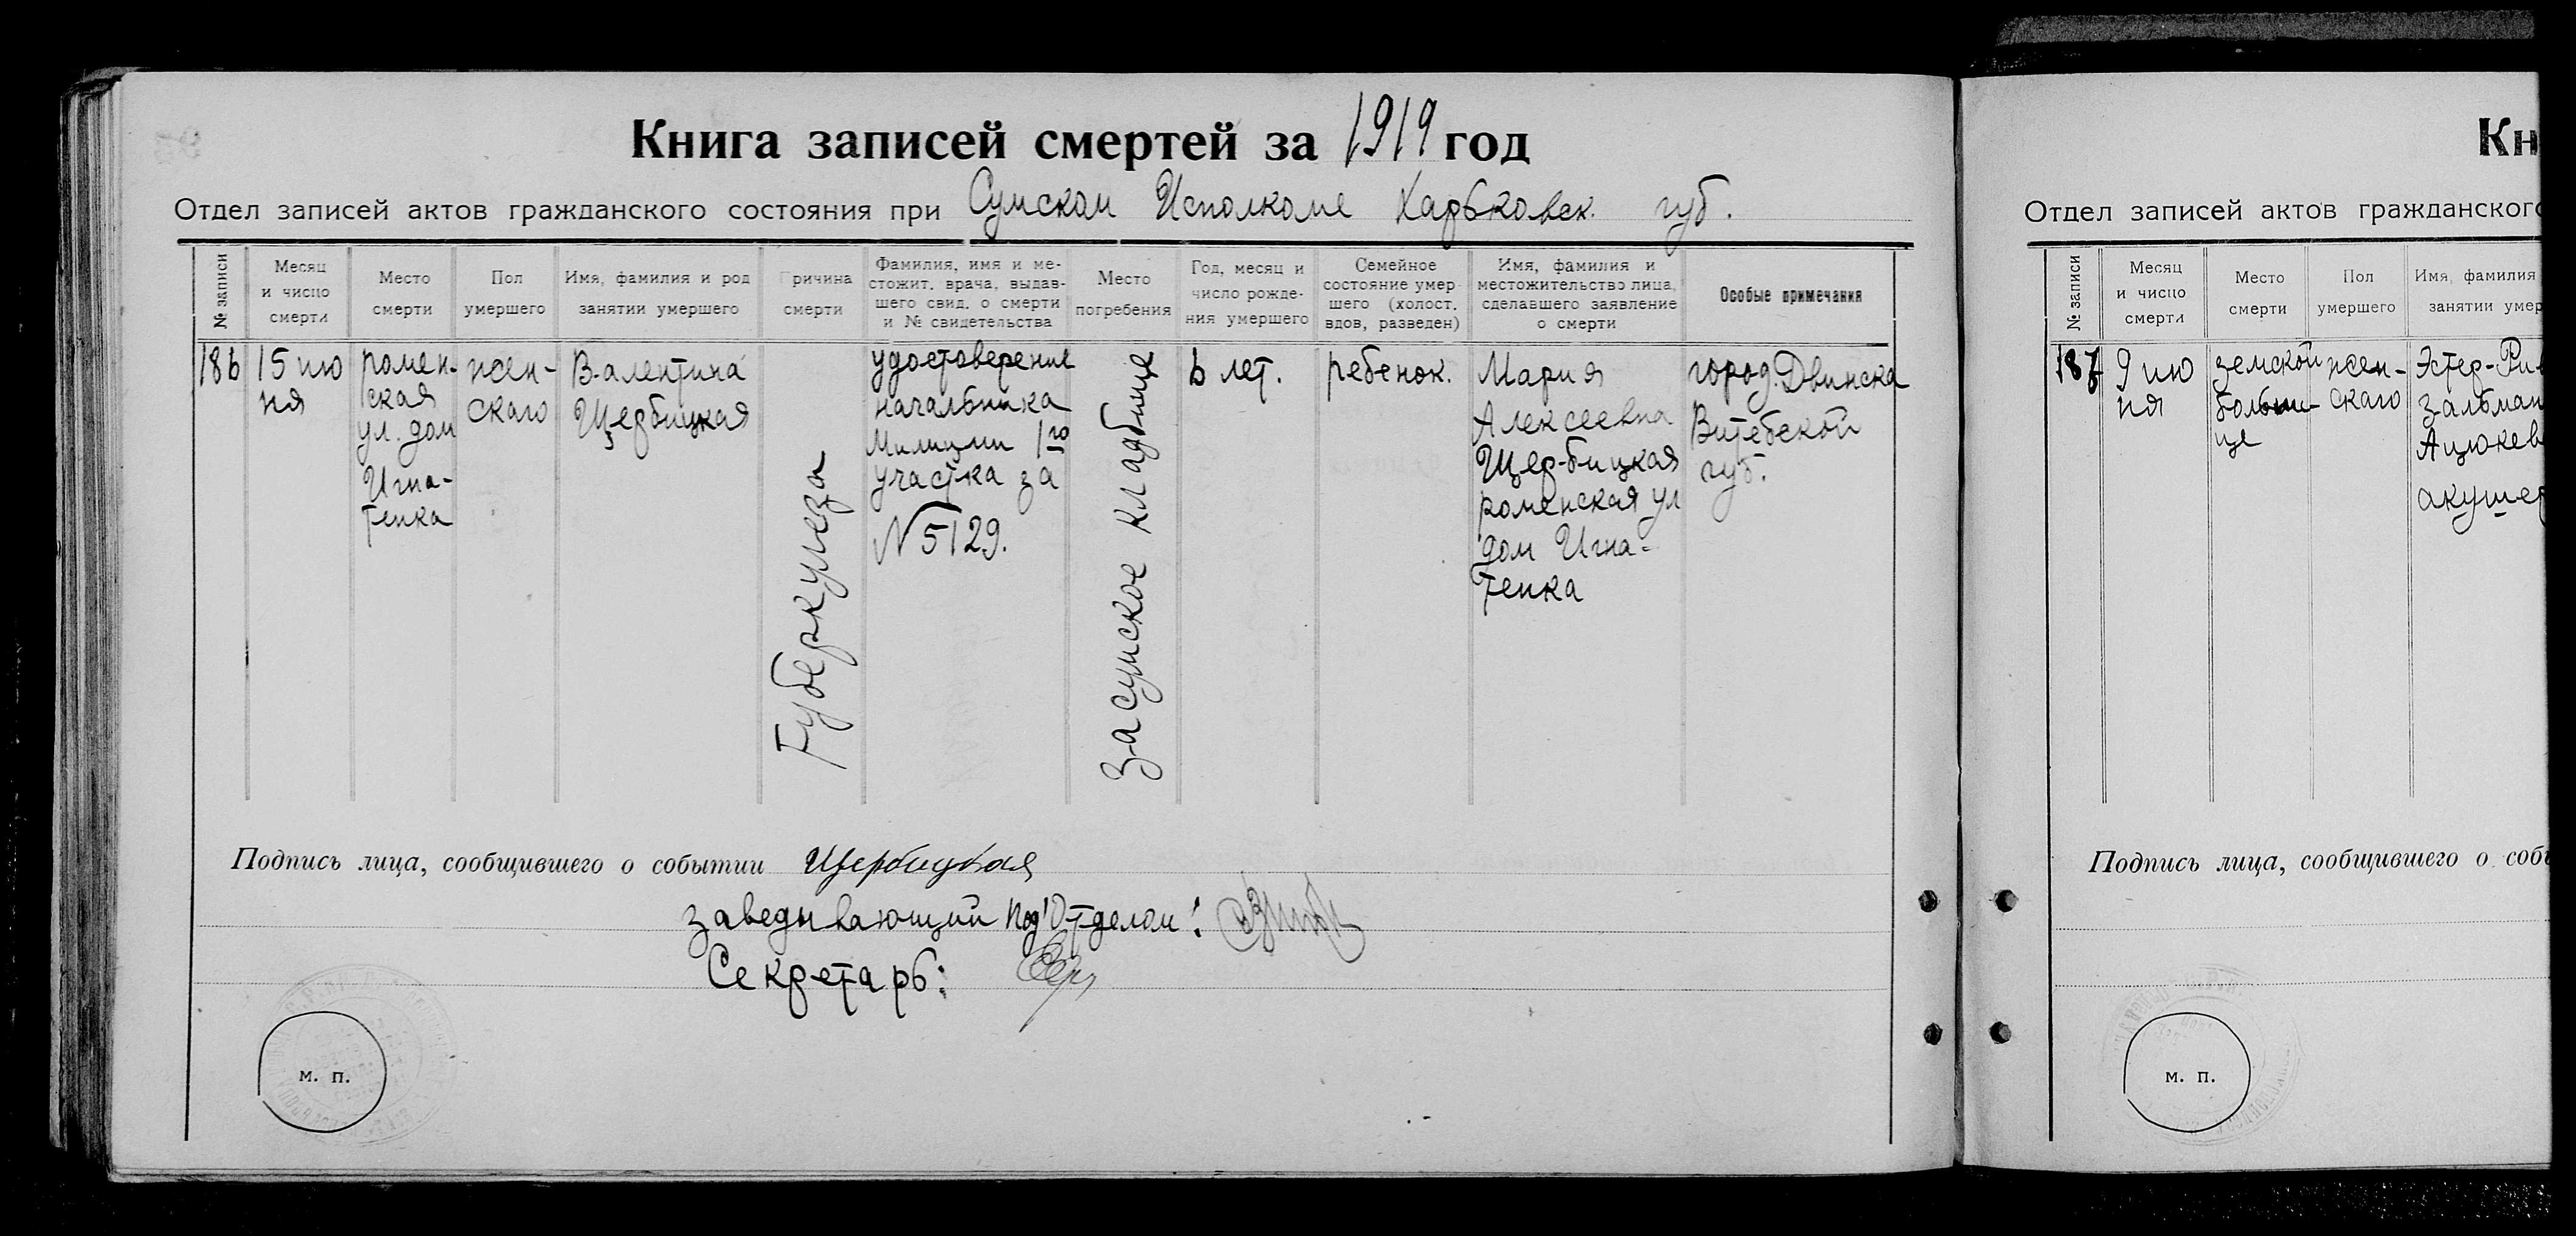 Книга записей смертей за 1919 год
Отдел записей актов гражданского состояния при Сумском Исполкоме Харьковск. губ.
№ записи
Месяц
и число
смерти
Место
смерти
Пол
умершего
Имя, фамилия и род
занятии умершего
Причина
смерти
Фамилия, имя и ме-
стожит. врача, выдав-
шего свид. о смерти
и № свидетельства
Место
погребения
Год, месяц и
число рожде-
ния умершего
Семейное
состояние умер
шего (холост.
вдов, разведен)
Имя, фамилия и
местожительство лица,
сделавшего заявление
о смерти
Особые примечания
186
15 ию
ня
ромен-
ская
ул. дом
Игна-
тенка
жен-
скаго
Валентина
Щербицкая
Туберкулеза
удостоверение
начальника
Милиции 1го
участка за
N 5129.
Засумское кладбище
6 лет.
ребенок.
Мария
Алексеевна
Щербицкая
роменская ул
дом Игна-
тенка
город. Двинска
Витебской
губ.
Подпись лица, сообщившего о событии Щербицкая
Заведывающий подотделом:
Секретарь:
м. п.
Кн
Отдел записей актов гражданского
№ записи
Месяц
и число
смерти
Место
смерти
Пол
умершего
Имя, фамилия
занятии умер
187
9 ию
ня
земской
больни-
це
жен-
скаго
Эстер-Рив
Зальман
Ацюкев
акушер
Подпись лица, сообщившего о собы
м. п.